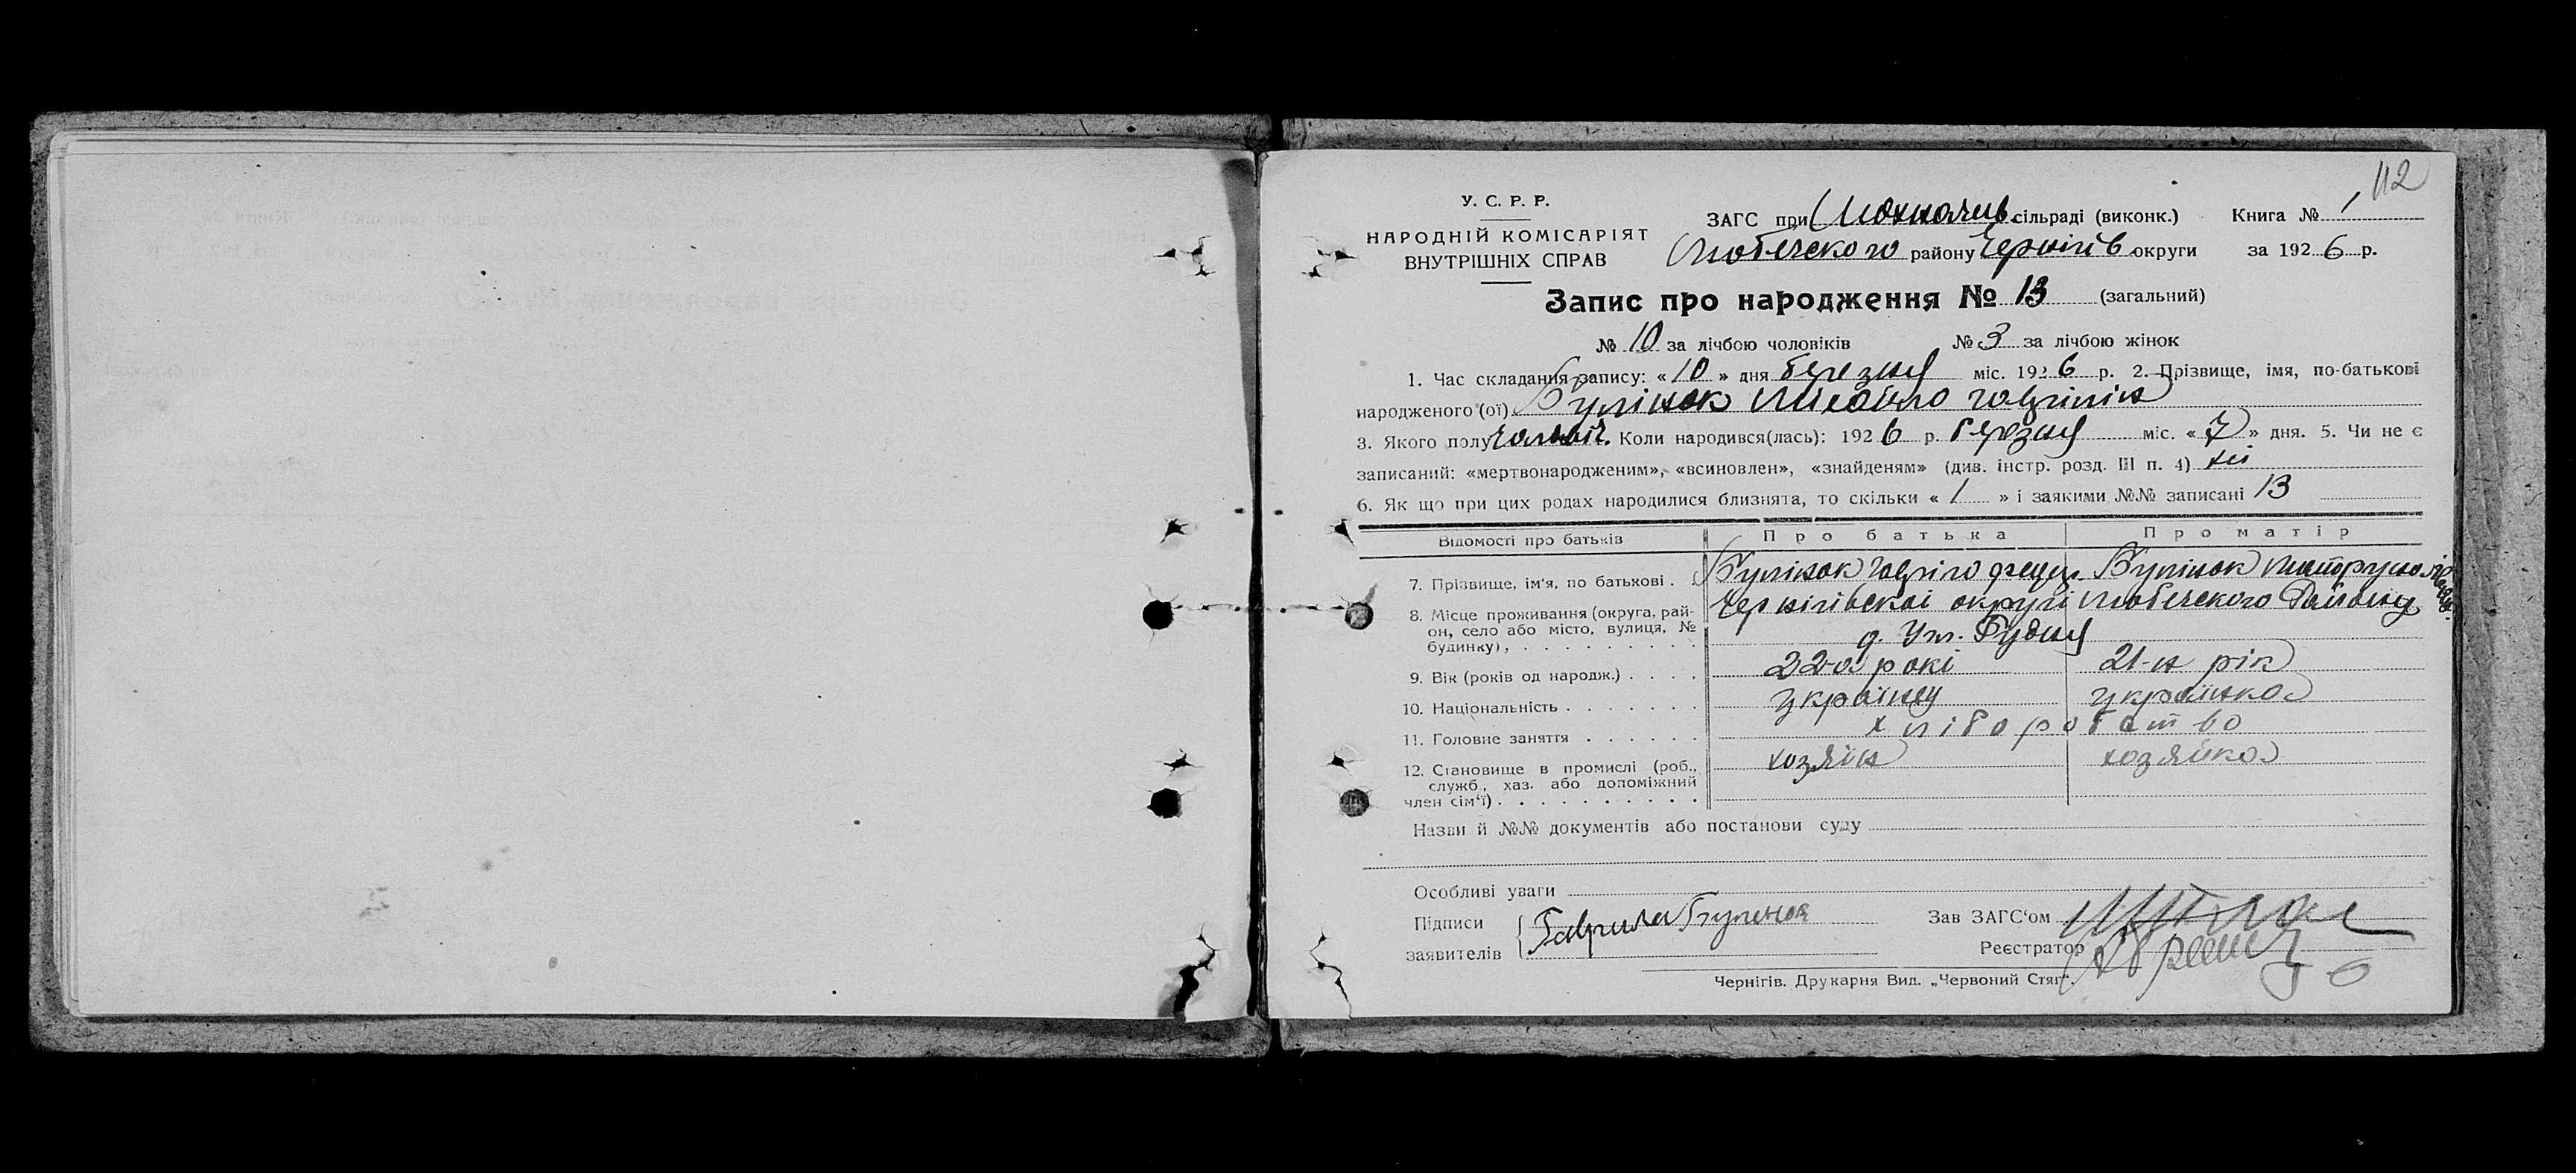 112
У. С. Р. Р.
НАРОДНІЙ КОМІСАРІЯТ
ВНУТРІШНІХ СПРАВ
ЗАГС при Мохначів. сільраді (виконк.) Книга № 1
Любечского району Чернігів округи за 1926 р.
Запис про народження № 13 (загальний)
№ 10 за лічбою чоловіків № 3 за лічбою жінок
1. Час складання запису: « 10 » дня березня міс. 1926 р. 2. Прізвище, імя, по-батькові
народженого (ої) Булінок Михайло
3. Якого полу чоловіч. Коли народився(лась): 1926 р. березня міс. « 7 » дня. 5. Чи не є
записаний: «мертвонародженим», «всиновлен», «знайденям» (див. інстр. розд. III п. 4) ні
6. Як що при цих родах народилися близнята, то скільки « 1 » і заякими №№ записані 13
Відомості про батьків Про батька Про матір
7. Прізвище, ім'я, по батькові . Булінок Гавріло Булінок
8. Місце проживання (округа, рай-
он, село або місто, вулиця, №
будинку), . . . . . . . . . .
Чернігівскоі округі Любечского Району
д. Ул. Рудня
9. Вік (років од народж.) . . . . 22-а рокі 21-н рік
10. Національність . . . . . . . українец українка
11. Головне заняття . . . . . . хліборобство
12. Становище в промислі (роб.,
служб., хаз. або допоміжний
член сім'ї) . . . . . . . . . .
хозяін хозяйка
Назви й №№ документів або постанови суду
Особливі уваги
Підписи
заявителів
Гаврила Буленок
Зав ЗАГС'ом
Реєстратор
Чернігів. Друкарня Вид. „Червоний Стяг".